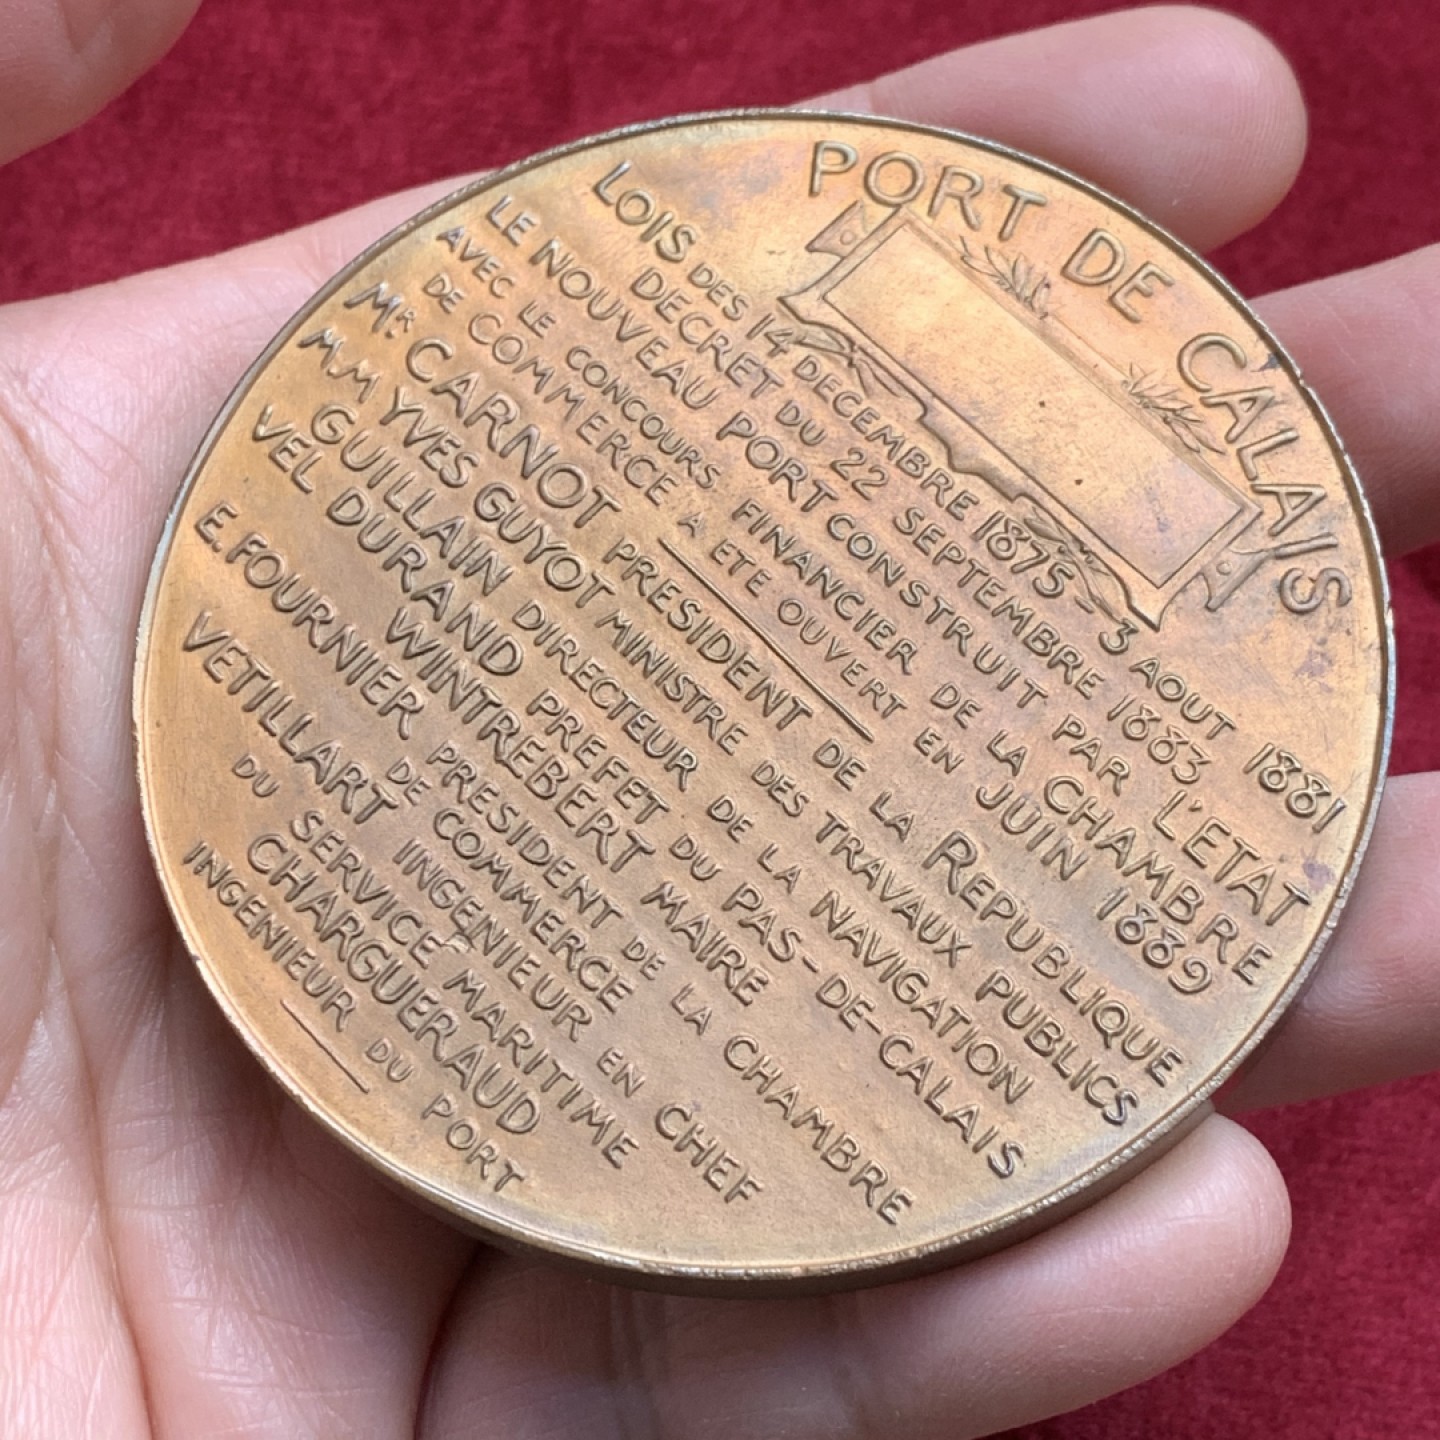 PORT DE CALAIS
LOIS DES 14 DECEMBRE 1875 - 3 AOUT 1881
DECRET DU 22 SEPTEMBRE 1883
LE NOUVEAU PORT CONSTRUIT PAR L'ETAT
AVEC LE CONCOURS FINANCIER DE LA CHAMBRE
DE COMMERCE A ETE OUVERT EN JUIN 1889
MR CARNOT PRESIDENT DE LA REPUBLIQUE
M.M YVES GUYOT MINISTRE DES TRAVAUX PUBLICS
GUILLAIN DIRECTEUR DE LA NAVIGATION
VEL DURAND PREFET DU PAS-DE-CALAIS
WINTREBERT MAIRE
E. FOURNIER PRESIDENT DE LA CHAMBRE
DE COMMERCE
VETILLART INGENIEUR EN CHEF
DU SERVICE MARITIME
CHARGUERAUD
INGENIEUR DU PORT